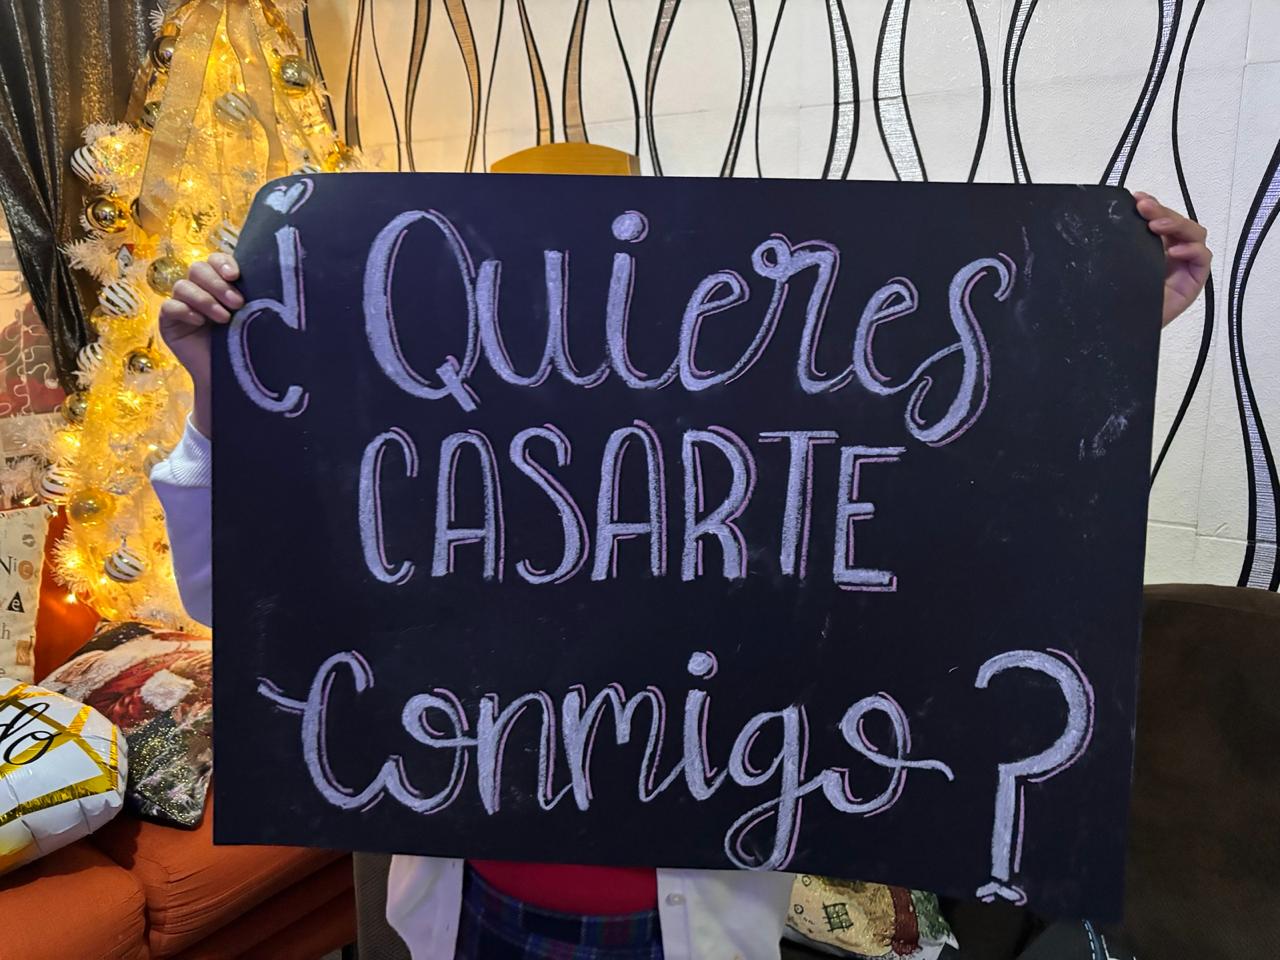 ¿Quieres
CASARTE
Conmigo?
do